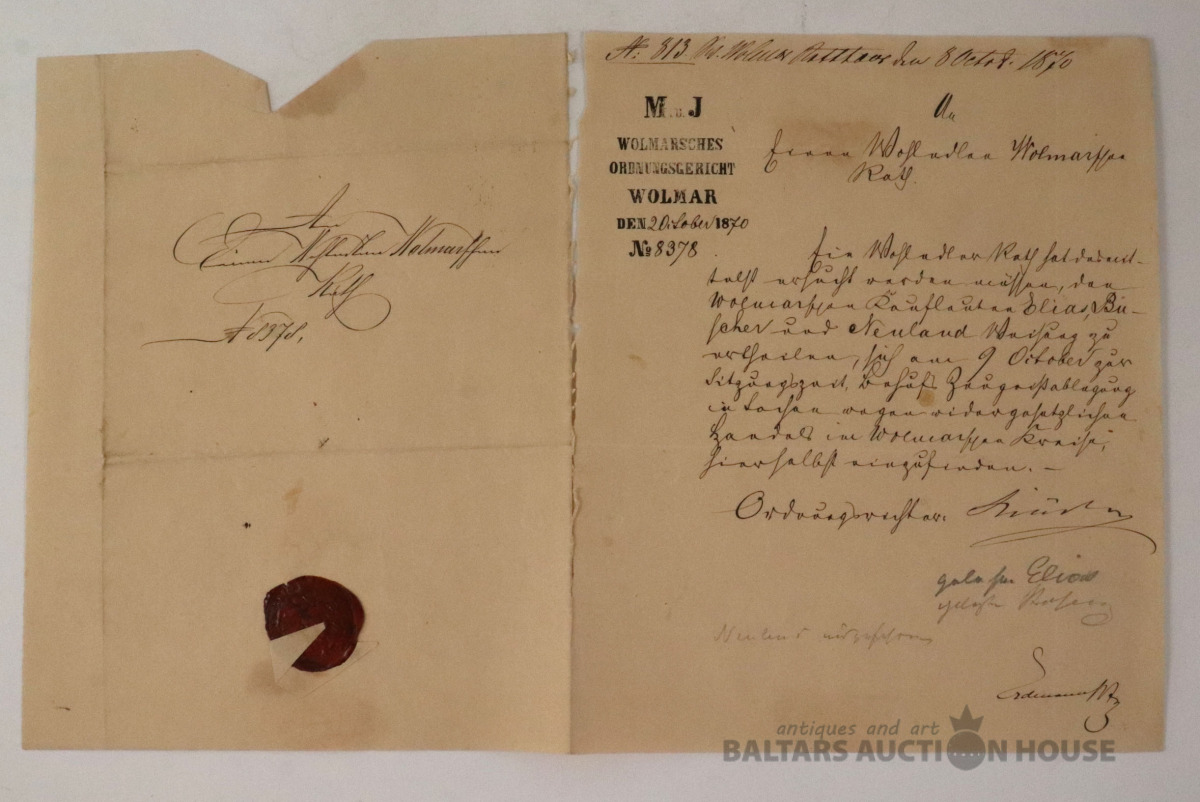 An
Einen Wohledlen Wolmarschen
Rath
№ 8378.
№ 813 Pr. Wolmar Rathhaus den 8 Octob. 1870
M. u. J
WOLMARSCHES
ORDNUNGSGERICHT
WOLMAR
DEN 2 October 1870
№ 8378
An
Einen Wohledlen Wolmarschen
Rath.
Ein Wohledler Rath hat desmit-
telst ersucht werden müssen, den
Wolmarschen Kaufleuten Elias, Bu-
scher und Neuland Weisung zu
ertheilen, sich am 9 October zur
Sitzungszeit, behufs Zeugnißablegung
in Sachen wegen widergesetzlichen
Handels im Wolmarschen Kreise,
hierselbst einzufinden. –
Ordnungsrichter:
gelesen Elias
gelesen
Neuland
Erdmann
antiques and art
BALTARS AUCTION HOUSE